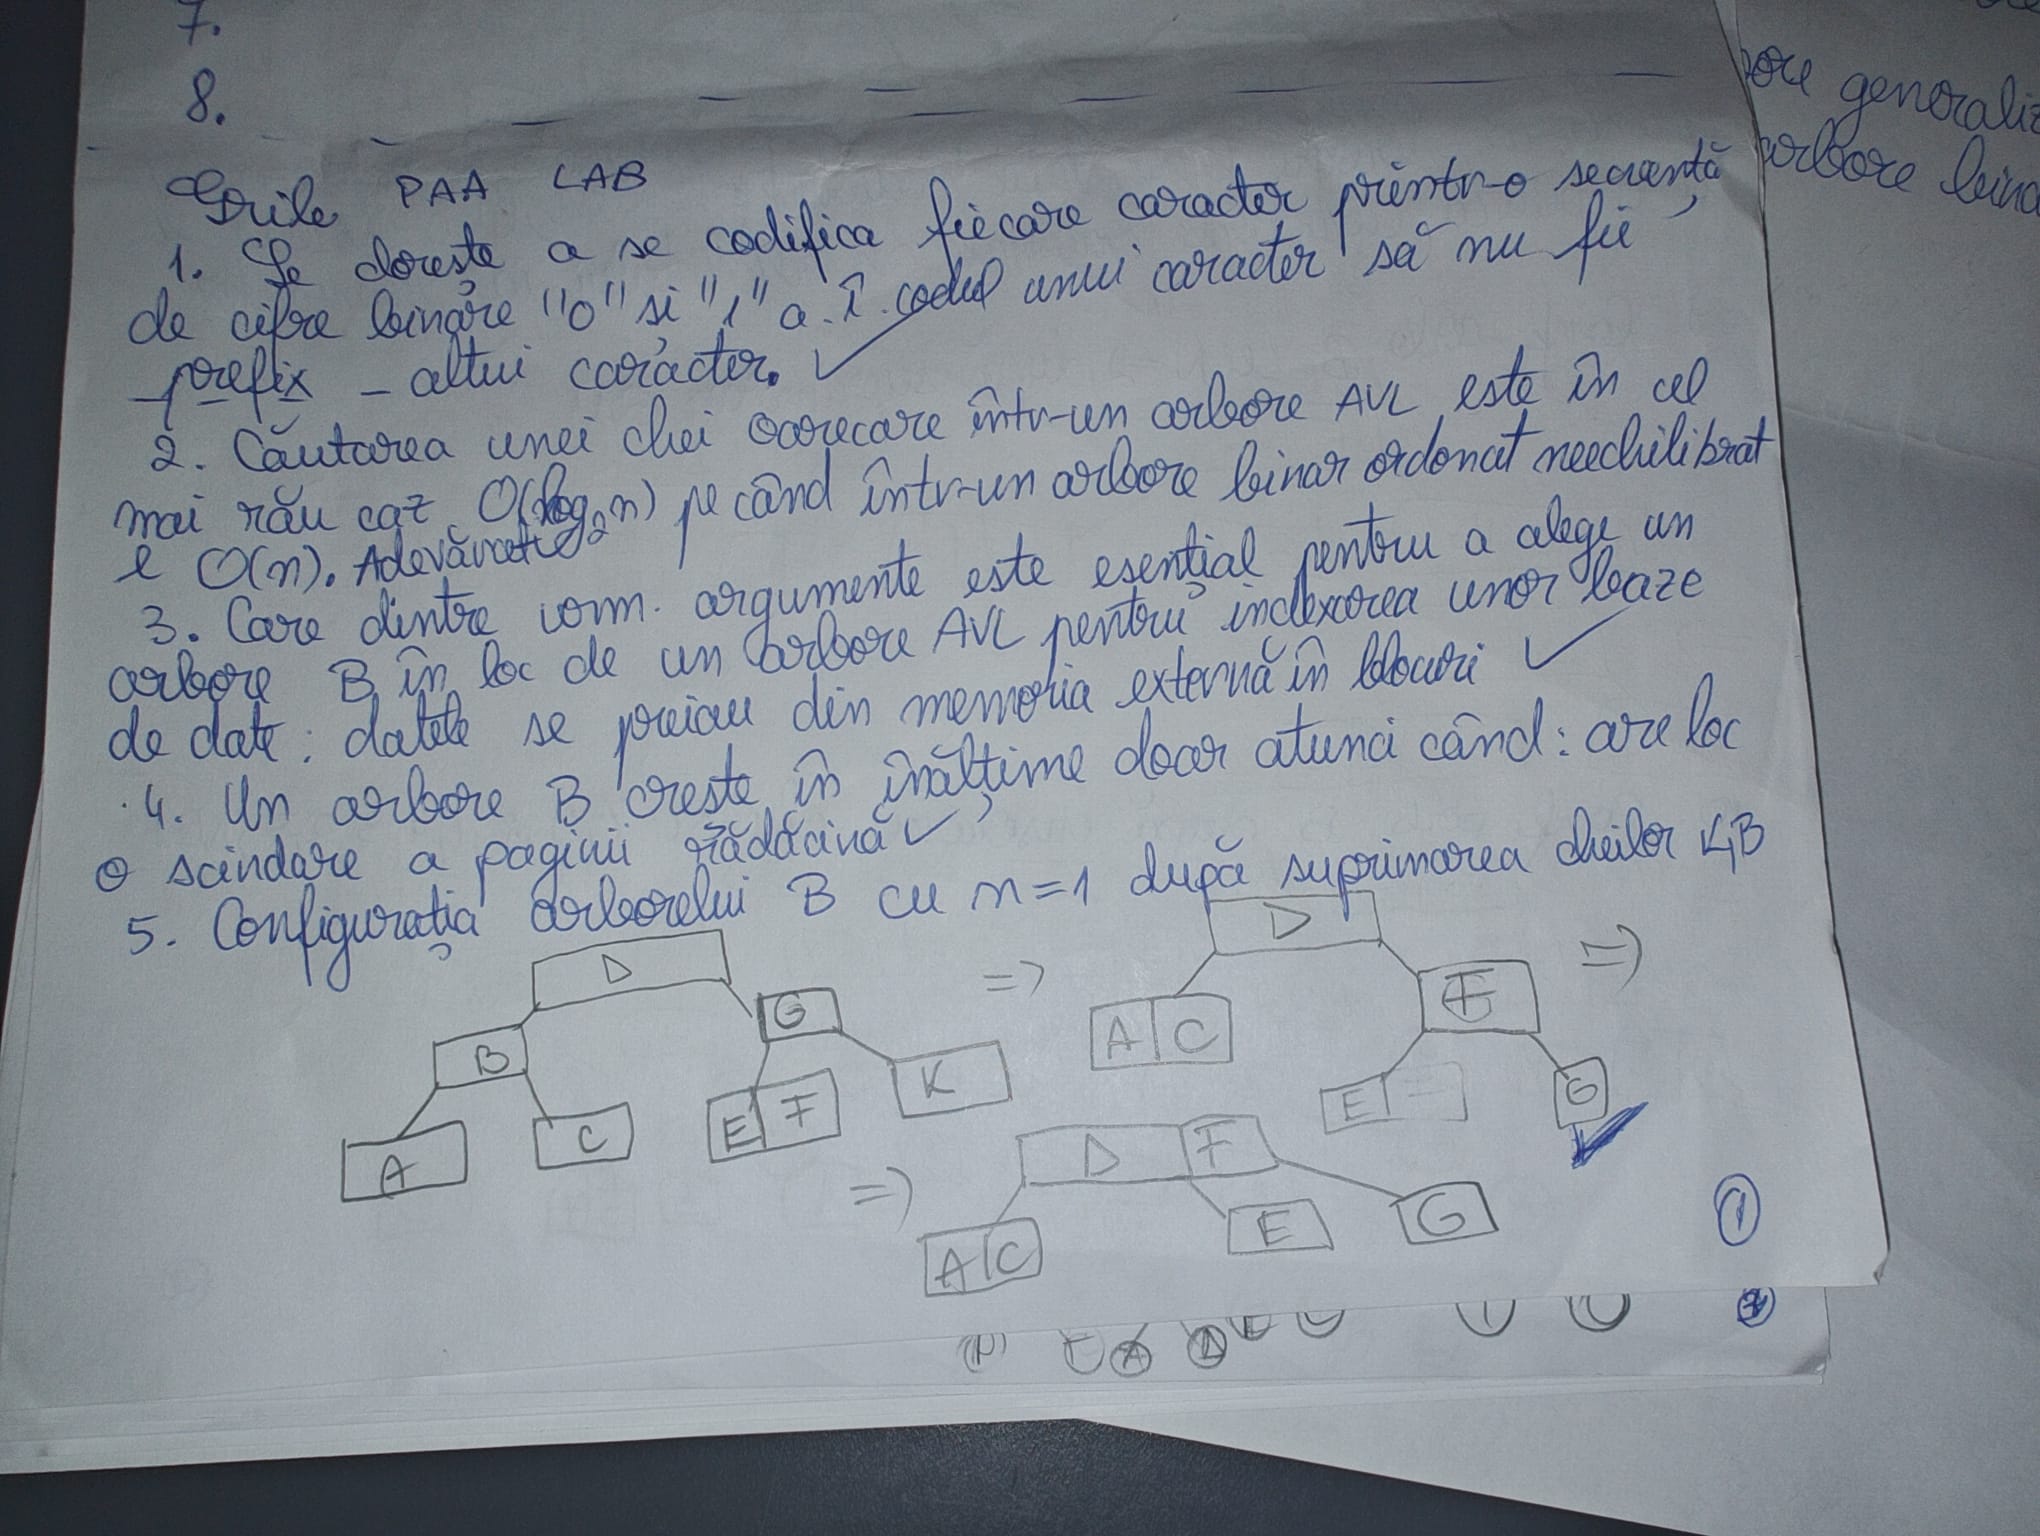 7.
8.
Grile PAA LAB
1. Se dorește a se codifica fiecare caracter printr-o secvență
de cifre binare "0" și "1" a.î. codul unui caracter să nu fie
prefix - altui caracter.
2. Căutarea unei chei oarecare într-un arbore AVL este în cel
mai rău caz O(log₂n) pe când într-un arbore binar ordonat neechilibrat
e O(n). Adevărat
3. Care dintre urm. argumente este esențial pentru a alege un
arbore B în loc de un arbore AVL pentru indexarea unor baze
de date: datele se preiau din memoria externă în blocuri
4. Un arbore B crește în înălțime doar atunci când: are loc
o scindare a paginii rădăcină
5. Configurația arborelui B cu n=1 după suprimarea cheilor K,B
D => D =>
B G A C F
A C E F K E G
=> D F
A C E G
1
2
ore generaliz
arbore bina